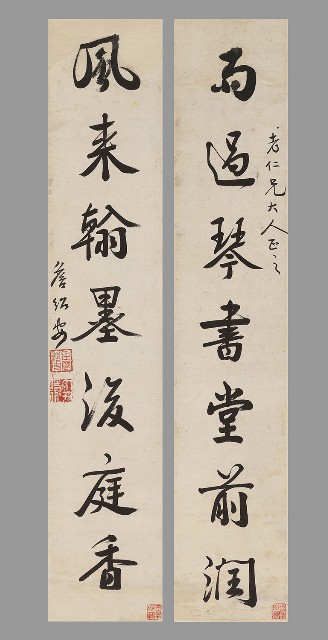 雨過琴書堂前潤
老仁兄大人正之
風来翰墨後庭香
詹紹安